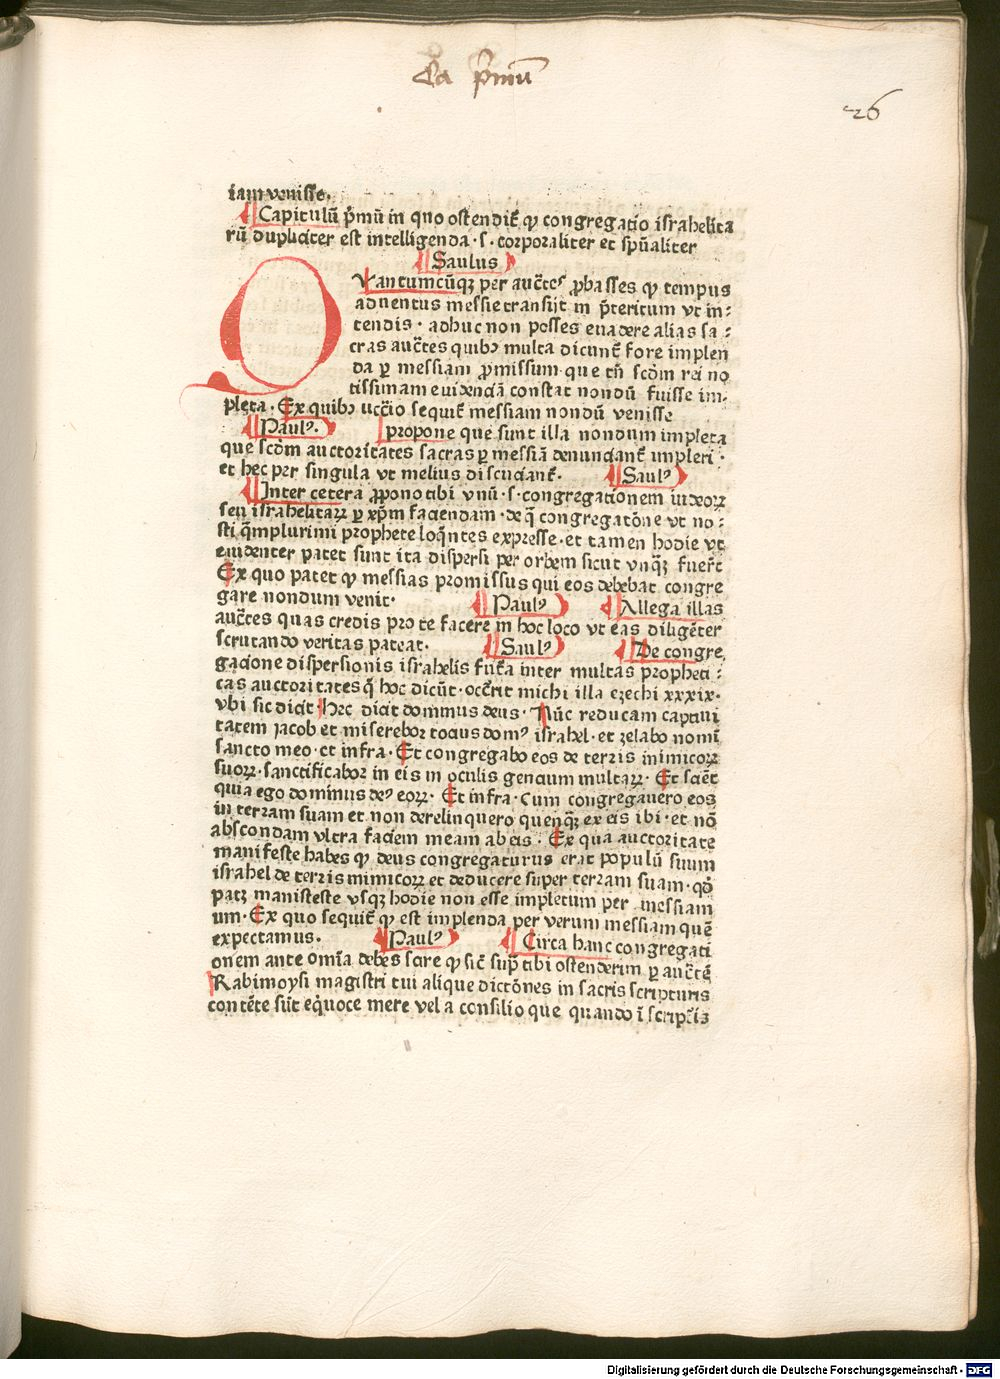 Ca p̄mū
26
iam venisse.
Capitulū p̄mū in quo ostendit̄ ꝙ congregatio israhelita
rū dupliciter est intelligenda · s · corporaliter et spūaliter
Saulus
QVantumcūqꝫ per auc̄tes ꝓbasses ꝙ tempus
aduentus messie transijt in p̄teritum vt in:
tendis · adhuc non posses euadere alias sa:
cras auc̄tes quibꝫ multa dicunt̄ fore implen
da ꝑ messiam ꝓmissum que tn̄ scd̄m rei no
tissimam euidenciā constat nondū fuisse im-
pleta · Ex quibꝫ ucc̄io sequit̄ messiam nondū venisse
Paulꝰ. propone que sunt illa nondum impleta
que scd̄m auctoritates sacras ꝑ messiā denunciant̄ impleri ·
et hec per singula vt melius discuciant̄. Saulꝰ
Inter cetera ꝓpono tibi vnū · s · congregationem iudeoꝝ
seu israhelitaꝝ ꝑ xp̄m faciendam · de q̄ congregatōne vt no-
sti q̄mplurimi prophete loq̄ntes expresse · et tamen hodie vt
euidenter patet sunt ita dispersi per orbem sicut vnqꝫ fuer̄t
Ex quo patet ꝙ messias promissus qui eos debebat congre
gare nondum venit. Paulꝰ Allega illas
auc̄tes quas credis pro te facere in hoc loco vt eas diligēter
scrutando veritas pateat. Saulꝰ De congre
gacione dispersionis israhelis fut̄a inter multas propheti-
cas auctoritates q̄ hoc dicūt · occ̄rit michi illa ezechi xxxix.
vbi sic dicit Hec dicit dominus deus · Nūc reducam captiui
tatem jacob et miserebor tocius domꝰ israhel · et zelabo nomī
sancto meo · et infra · Et congregabo eos de terris inimicoꝝ
suoꝝ · sanctificabor in eis in oculis gencium multaꝝ · Et sciēt
quia ego dominus deꝰ eoꝝ · Et infra · Cum congregauero eos
in terram suam et non derelinquero quenqꝫ ex eis ibi · et nō
abscondam vltra faciem meam ab eis · Ex qua auctoritate
manifeste habes ꝙ deus congregaturus erat populū suum
israhel de terris inimicoꝝ et deducere super terram suam · qd̄
patꝫ manifeste vsqꝫ hodie non esse impletum per messiam
um · Ex quo sequit̄ ꝙ est implenda per verum messiam quē
expectamus. Paulꝰ Circa hanc congregati
onem ante omīa debes scire ꝙ sic̄ sup̄ tibi ostenderim ꝑ auc̄tē
Rabimoysi magistri tui alique dictōnes in sacris scripturis
contēte sūt eq̄uoce mere vel a consilio que quando ī script̄is
Digitalisierung gefördert durch die Deutsche Forschungsgemeinschaft - DFG